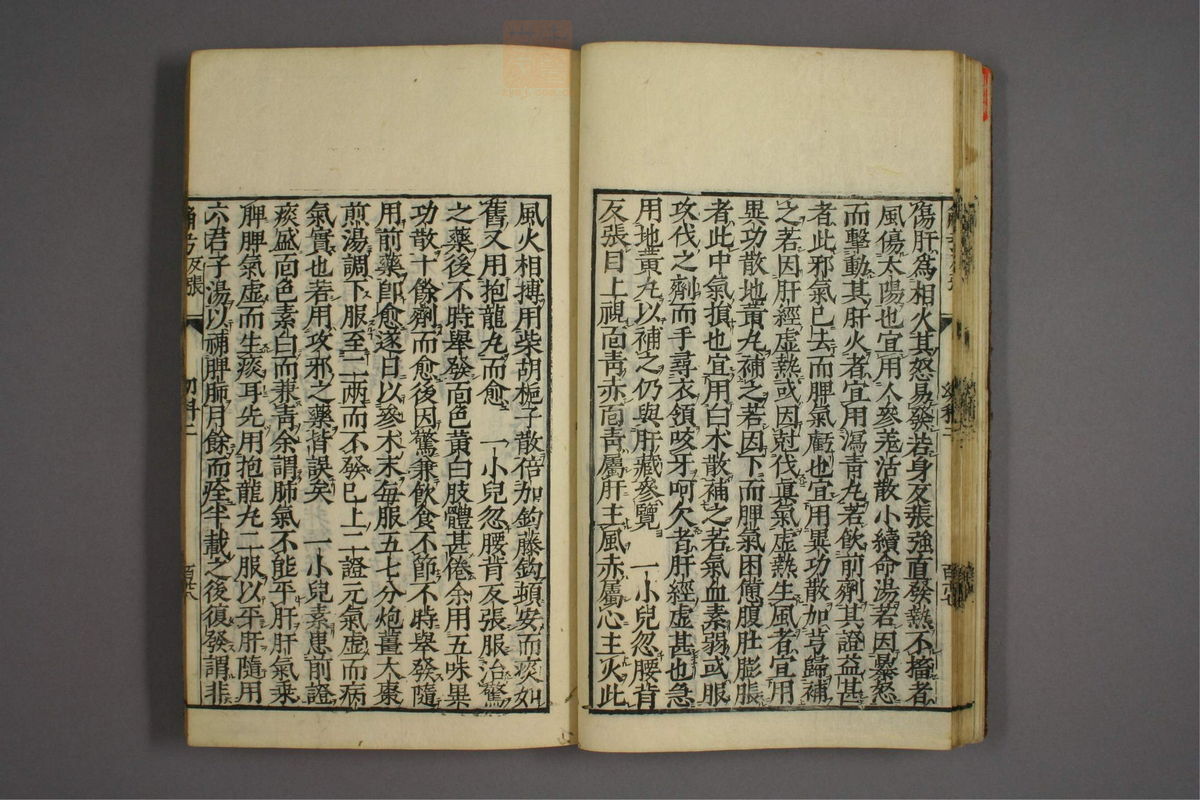 傷肝爲相火其怒易發若身反張強直發熱不搐者
風傷太陽也宜用人參羌活散小續命湯若因暴怒
而擊動其肝火者宜用瀉青丸若飲前劑其證益甚
者此邪氣已去而脾氣虧也宜用異功散加芎歸補
之若因肝經虛熱或因尅伐眞氣虛熱生風者宜用
異功散地黃丸補之若因下而脾氣困憊腹肚膨脹
者此中氣損也宜用白朮散補之若氣血素弱或服
攻伐之劑而手尋衣領咬牙呵欠者肝經虛甚也急
用地黃丸以補之仍與肝臟參覽 一小兒忽腰背
反張目上視面青赤面青屬肝主風赤屬心主火此
風火相搏用柴胡梔子散倍加鈎藤鈎頓安而痰如
舊又用抱龍丸而愈 一小兒忽腰背反張服治驚
之藥後不時舉發面色黃白肢體甚倦余用五味異
功散十餘劑而愈後因驚兼飲食不節不時舉發隨
用前藥卽愈遂日以參朮末每服五七分炮薑大棗
煎湯調下服至二兩而不發已上二證元氣虛而病
氣實也若用攻邪之藥皆誤矣 一小兒素患前證
痰盛面色素白而兼青余謂肺氣不能平肝肝氣乘
脾脾氣虛而生痰耳先用抱龍丸二服以平肝隨用
六君子湯以補脾肺月餘而痊半載之後復發謂非
幼科二
百六八